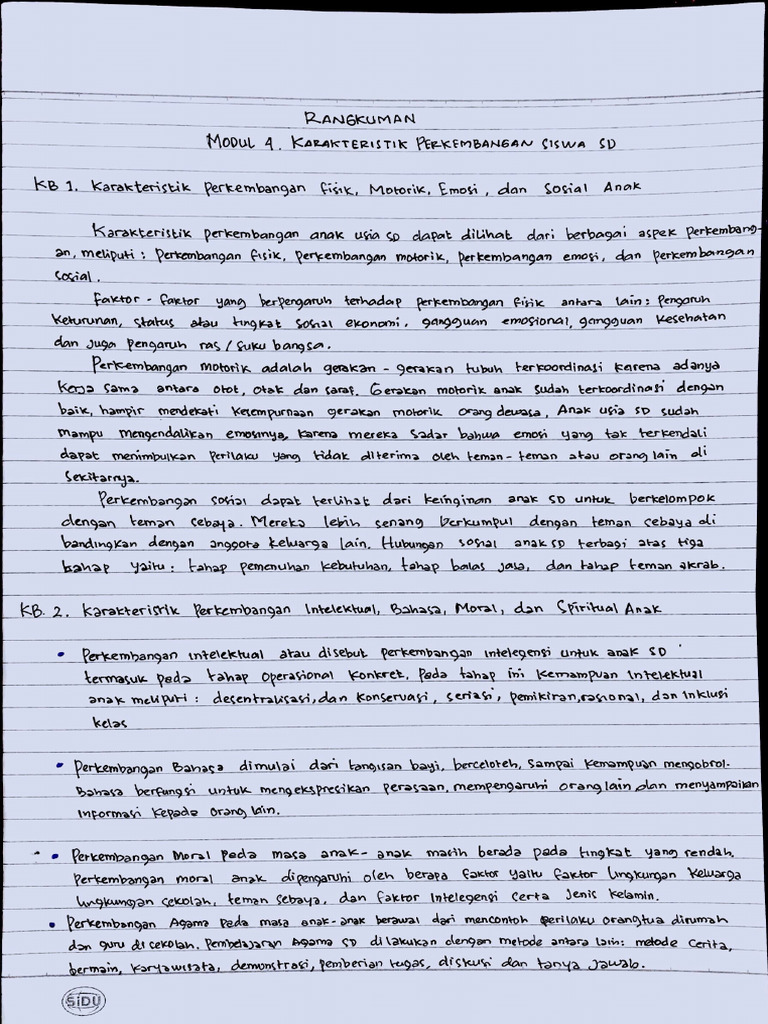 RANGKUMAN
MODUL 4. KARAKTERISTIK PERKEMBANGAN SISWA SD
KB 1. Karakteristik Perkembangan Fisik, Motorik, Emosi, dan Sosial Anak
Karakteristik perkembangan anak usia SD dapat dilihat dari berbagai aspek perkembang-
an, meliputi : perkembangan fisik, perkembangan motorik, perkembangan emosi, dan perkembangan
sosial.
Faktor - faktor yang berpengaruh terhadap perkembangan fisik antara lain : pengaruh
keturunan, status atau tingkat sosial ekonomi, gangguan emosional, gangguan kesehatan
dan juga pengaruh ras / suku bangsa.
Perkembangan motorik adalah gerakan - gerakan tubuh terkoordinasi karena adanya
kerja sama antara otot, otak dan saraf. Gerakan motorik anak sudah terkoordinasi dengan
baik, hampir mendekati kesempurnaan gerakan motorik orang dewasa, Anak usia SD sudah
mampu mengendalikan emosinya, karena mereka sadar bahwa emosi yang tak terkendali
dapat menimbulkan perilaku yang tidak diterima oleh teman - teman atau orang lain di
sekitarnya.
Perkembangan sosial dapat terlihat dari keinginan anak SD untuk berkelompok
dengan teman sebaya. Mereka lebih senang berkumpul dengan teman sebaya di
bandingkan dengan anggota keluarga lain. Hubungan sosial anak SD terbagi atas tiga
bahap yaitu : tahap pemenuhan kebutuhan, tahap balas jasa, dan tahap teman akrab.
KB. 2. Karakterisrik Perkembangan Intelektual, Bahasa, Moral, dan Spiritual Anak
• Perkembangan intelektual atau disebut perkembangan intelegensi untuk anak SD
termasuk pada tahap operasional konkret, pada tahap ini kemampuan intelektual
anak meliputi : desentralisasi, dan konservasi, seriasi, pemikiran, rasional, dan inklusi
kelas
• Perkembangan Bahasa dimulai dari tangisan bayi, berceloteh, sampai kemampuan mengobrol.
Bahasa berfungsi untuk mengekspresikan perasaan, mempengaruhi orang lain dan menyampaikan
informasi kepada orang lain.
• Perkembangan Moral pada masa anak - anak masih berada pada tingkat yang rendah.
Perkembangan moral anak dipengaruhi oleh berapa faktor yaitu faktor lingkungan keluarga
lingkungan sekolah, teman sebaya, dan faktor intelegensi certa jenis kelamin.
• Perkembangan Agama pada masa anak-anak berawal dari mencontoh perilaku orangtua dirumah
dan guru di sekolah. Pembelajaran Agama SD dilakukan dengan metode antara lain: metode cerita,
bermain, karyawisata, demonstrasi, pemberian tugas, diskusi dan tanya jawab.
SiDU